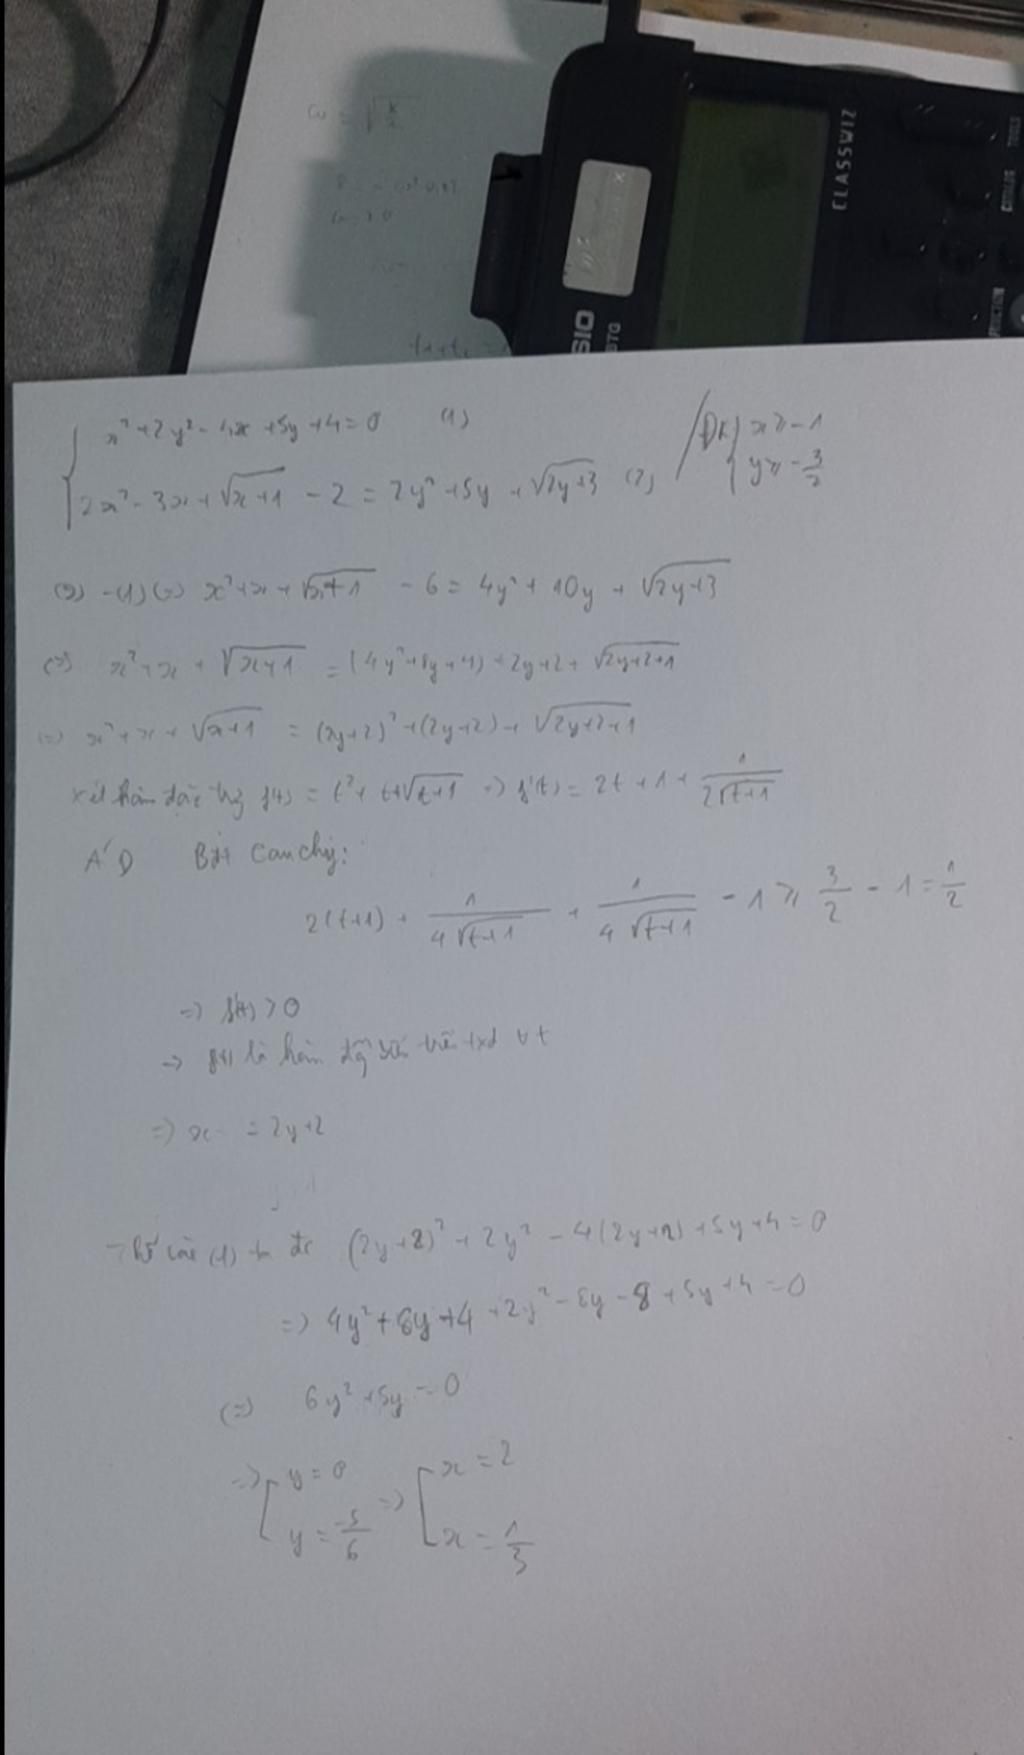 ω = √(k/2)
CLASSWIZ
SIO
BTG
CATALOG TOOLS
{ x² + 2y² - 4x + 5y + 4 = 0 (1)
{ 2x² - 3x + √(x+1) - 2 = 2y² + 5y + √(2y+3) (2)
/ ĐK { x ≥ -1
{ y ≥ -3/2
(2) - (1) (=) x² + x + √(x+1) - 6 = 4y² + 10y + √(2y+3)
(=) x² + x + √(x+1) = (4y² + 8y + 4) + 2y + 2 + √(2y+2+1)
(=) x² + x + √(x+1) = (2y+2)² + (2y+2) + √(2y+2+1)
Xét hàm đặc trg f(t) = t² + t + √(t+1) => f'(t) = 2t + 1 + 1/(2√(t+1))
A'D Bđt Cauchy:
2(t+1) + 1/(4√(t+1)) + 1/(4√(t+1)) - 1 ≥ 3/2 - 1 = 1/2
=> f'(t) > 0
=> f(t) là hàm đg biến trên txđ ∀t
=> x = 2y+2
Thế vào (1) ta đc (2y+2)² + 2y² - 4(2y+2) + 5y + 4 = 0
=> 4y² + 8y + 4 + 2y² - 8y - 8 + 5y + 4 = 0
(=) 6y² + 5y = 0
=> [ y = 0 => [ x = 2
[ y = -5/6 [ x = 1/3